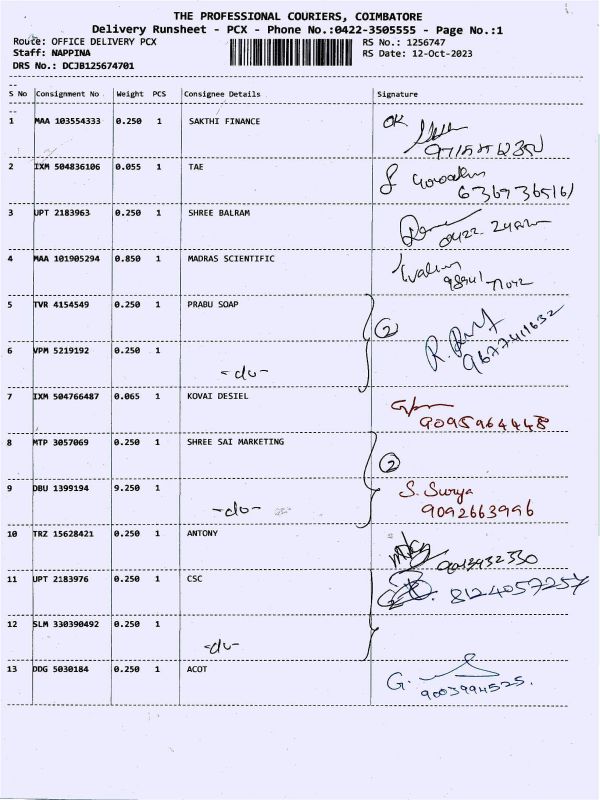 THE PROFESSIONAL COURIERS, COIMBATORE
Delivery Runsheet - PCX - Phone No.:0422-3505555 - Page No.:1
Route: OFFICE DELIVERY PCX RS No.: 1256747
Staff: NAPPINA RS Date: 12-Oct-2023
DRS No.: DCJB125674701
S No Consignment No Weight PCS Consignee Details Signature
1 MAA 103554333 0.250 1 SAKTHI FINANCE OK
2 IXM 504836106 0.055 1 TAE
63697365161
3 UPT 2183963 0.250 1 SHREE BALRAM
0422
4 MAA 101905294 0.850 1 MADRAS SCIENTIFIC
5 TVR 4154549 0.250 1 PRABU SOAP
2
9677411632
6 VPM 5219192 0.250 1 -do-
7 IXM 504766487 0.065 1 KOVAI DESIEL
9095964448
8 MTP 3057069 0.250 1 SHREE SAI MARKETING
2
9 DBU 1399194 9.250 1 -do- S. Surya
9092663996
10 TRZ 15628421 0.250 1 ANTONY
11 UPT 2183976 0.250 1 CSC 8124057257
12 SLM 330390492 0.250 1 -do-
13 DDG 5030184 0.250 1 ACOT G.
9003994525.